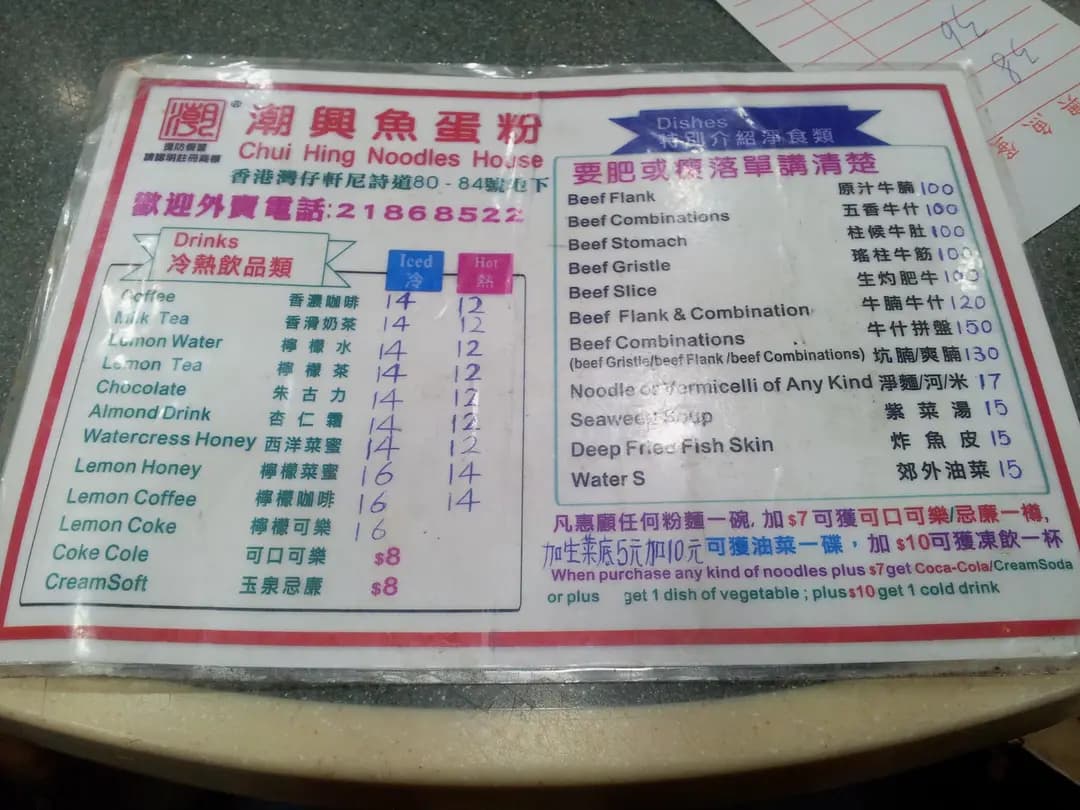 潮 ® 潮興魚蛋粉
Chui Hing Noodles House
提防假冒
請認明註冊商標
香港灣仔軒尼詩道80 - 84號地下
歡迎外賣電話:21868522
Drinks
冷熱飲品類
Iced Hot
冷 熱
Coffee 香濃咖啡 14 12
Milk Tea 香滑奶茶 14 12
Lemon Water 檸檬水 14 12
Lemon Tea 檸檬茶 14 12
Chocolate 朱古力 14 12
Almond Drink 杏仁霜 14 12
Watercress Honey 西洋菜蜜 14 12
Lemon Honey 檸檬菜蜜 16 14
Lemon Coffee 檸檬咖啡 16 14
Lemon Coke 檸檬可樂 16
Coke Cole 可口可樂 $8
CreamSoft 玉泉忌廉 $8
Dishes
特別介紹淨食類
要肥或瘦落單講清楚
Beef Flank 原汁牛腩 100
Beef Combinations 五香牛什 100
Beef Stomach 柱候牛肚 100
Beef Gristle 瑤柱牛筋 100
Beef Slice 生灼肥牛 100
Beef Flank & Combination 牛腩牛什 120
Beef Combinations 牛什拼盤 150
(beef Gristle/beef Flank /beef Combinations) 坑腩/爽腩 130
Noodle or Vermicelli of Any Kind 淨麵/河/米 17
Seaweed Soup 紫菜湯 15
Deep Fried Fish Skin 炸魚皮 15
Water S 郊外油菜 15
凡惠顧任何粉麵一碗, 加$7可獲可口可樂/忌廉一樽,
加生菜底5元加10元可獲油菜一碟，加$10可獲凍飲一杯
When purchase any kind of noodles plus $7get Coca-Cola/CreamSoda
or plus get 1 dish of vegetable ; plus$10 get 1 cold drink
36
38